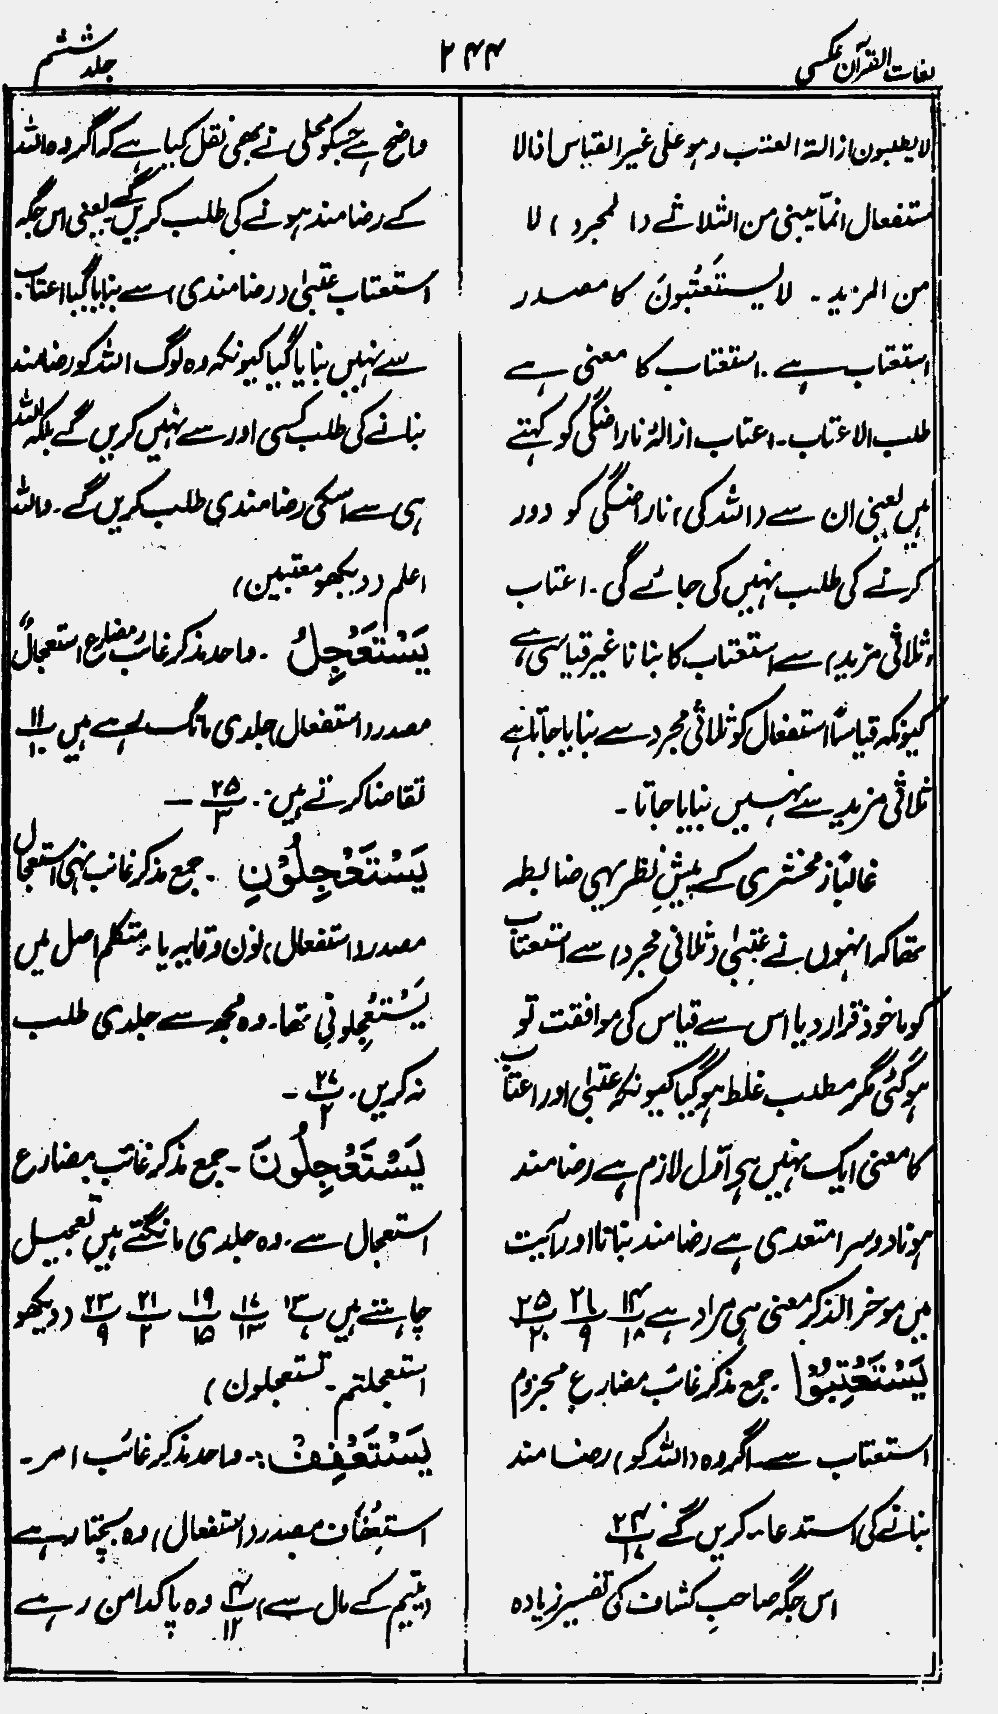 لغات القرآن عکسی
۲۴۴
جلد ششم
لا یطلبون ازالۃ العتب وہو علی غیر القیاس اذ الا
ستفعال انما یبنی من الثلاثے (المجرد) لا
من المزید۔ لا یَسْتَعْتِبُونَ کا مصدر
استعتاب ہے۔ استعتاب کا معنی ہے
طلب الاعتاب۔ اعتاب ازالۂ ناراضگی کو کہتے
ہیں یعنی ان سے (اللہ کی) ناراضگی کو دور
کرنے کی طلب نہیں کی جائے گی۔ اعتاب
(ثلاثی مزید) سے استعتاب کا بنانا غیر قیاسی ہے
کیونکہ قیاساً استفعال کو ثلاثی مجرد سے بنایا جاتا ہے
ثلاثی مزید سے نہیں بنایا جاتا۔
غالباً زمخشری کے پیشِ نظر یہی ضابطہ
تھا کہ انہوں نے عتبیٰ (ثلاثی مجرد) سے استعتاب
کو ماخوذ قرار دیا اس سے قیاس کی موافقت تو
ہوگئی مگر مطلب غلط ہوگیا کیونکہ عتبیٰ اور اعتاب
کا معنی ایک نہیں ہے اوّل لازم ہے رضامند
ہونا دوسرا متعدی ہے رضامند بنانا اور آیت
میں موخر الذکر معنی ہی مراد ہے ۱۴/۱۸ ۲۱/۹ ۲۵/۲۰
یَسْتَعْتِبُوْا۔ جمع مذکر غائب مضارع مجزوم
استعتاب سے۔ اگر وہ (اللہ کو) رضامند
بنانے کی استدعا۔ کریں گے ۲۴/۱۷
اس جگہ صاحبِ کشاف کی تفسیر زیادہ
واضح ہے جسکو محلی نے بھی نقل کیا ہے کہ اگر وہ اللہ
کے رضامند ہونے کی طلب کریں گے یعنی اس جگہ
استعتاب عتبیٰ (رضامندی) سے بنایا گیا اعتاب
سے نہیں بنایا گیا کیونکہ وہ لوگ اللہ کو رضامند
بنانے کی طلب کسی اور سے نہیں کریں گے بلکہ اللہ
ہی سے اسکی رضامندی طلب کریں گے۔ واللہ
اعلم (دیکھو معتبین)
یَسْتَعْجِلُ۔ واحد مذکر غائب مضارع استعجالٌ
مصدر (استفعال) جلدی مانگ رہے ہیں ۱۱/۱۰
تقاضا کرتے ہیں۔ ۲۵/۳ —
یَسْتَعْجِلُوْنِ۔ جمع مذکر غائب نہی استعجال
مصدر (استفعال) نون وقایہ یا۔ متکلم اصل میں
یَسْتَعْجِلُونِی تھا۔ وہ مجھ سے جلدی طلب
نہ کریں۔ ۲۷/۲ —
یَسْتَعْجِلُونَ۔ جمع مذکر غائب مضارع
استعجال سے۔ وہ جلدی مانگتے ہیں تعجیل
چاہتے ہیں ۱۳ ۱۷/۱۳ ۱۹/۱۵ ۲۱/۲ ۲۳/۹ (دیکھو
استعجلتم۔ تستعجلون)
یَسْتَعْفِفْ:۔ واحد مذکر غائب امر۔
استعفاف مصدر (استفعال) وہ بچتا رہے
(یتیم کے مال سے) ۴/۱۲ وہ پاکدامن رہے